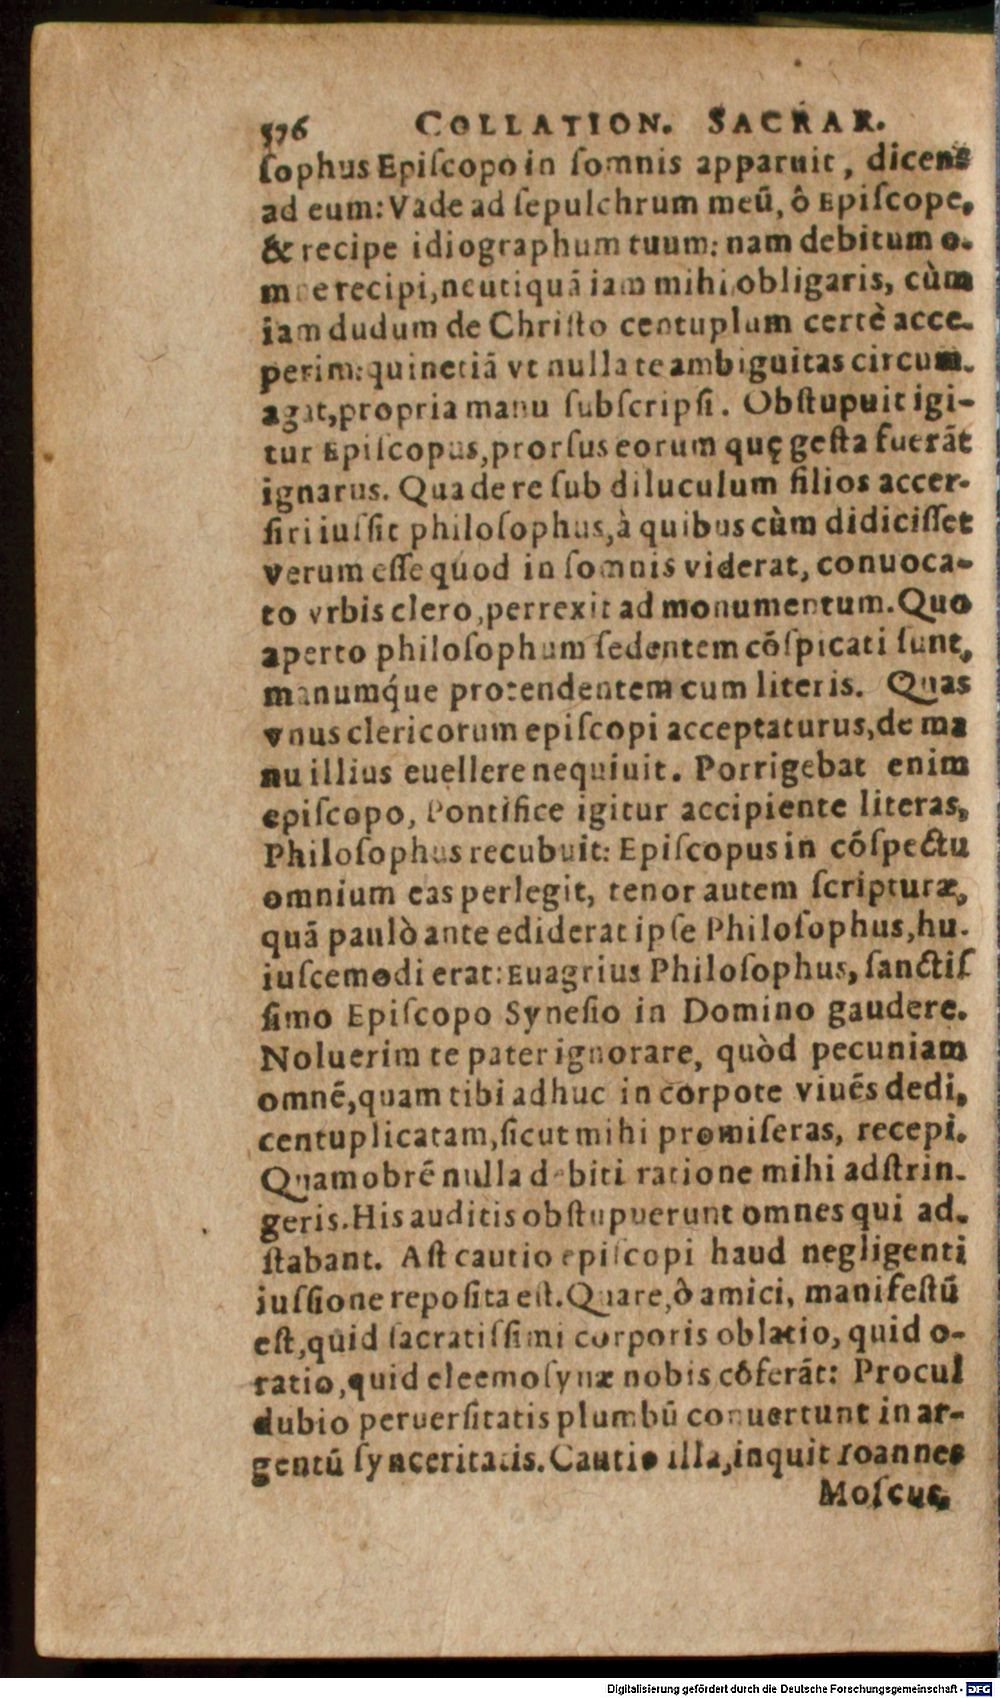 576 COLLATION. SACRAR.
ſophus Epiſcopo in ſomnis apparuit, dicens
ad eum: Vade ad ſepulchrum meū, ô Epiſcope,
& recipe idiographum tuum: nam debitum o-
mne recipi, neutiquā iam mihi obligaris, cùm
iam dudum de Chriſto centuplum certè acce-
perim: quinetiā vt nulla te ambiguitas circum-
agat, propria manu ſubſcripſi. Obſtupuit igi-
tur Epiſcopus, prorſus eorum quę geſta fuerāt
ignarus. Qua de re ſub diluculum filios accer-
ſiri iuſſit philoſophus, à quibus cùm didiciſſet
verum eſſe quod in ſomnis viderat, conuoca-
to vrbis clero, perrexit ad monumentum. Quo
aperto philoſophum ſedentem cōſpicati ſunt,
manumq́ue protendentem cum literis. Quas
vnus clericorum epiſcopi acceptaturus, de ma
nu illius euellere nequiuit. Porrigebat enim
epiſcopo, Pontifice igitur accipiente literas,
Philoſophus recubuit: Epiſcopus in cōſpectu
omnium eas perlegit, tenor autem ſcripturæ,
quā paulò ante ediderat ipſe Philoſophus, hu-
iuſcemodi erat: Euagrius Philoſophus, ſanctiſ
ſimo Epiſcopo Syneſio in Domino gaudere.
Noluerim te pater ignorare, quòd pecuniam
omnē, quam tibi adhuc in corpote viuēs dedi,
centuplicatam, ſicut mihi promiſeras, recepi.
Quamobrē nulla debiti ratione mihi adſtrin-
geris. His auditis obſtupuerunt omnes qui ad-
ſtabant. Aſt cautio epiſcopi haud negligenti
iuſſione repoſita eſt. Quare, ò amici, manifeſtū
eſt, quid ſacratiſſimi corporis oblatio, quid o-
ratio, quid eleemoſynæ nobis cōferāt: Procul
dubio peruerſitatis plumbū conuertunt in ar-
gentū ſynceritatis. Cautio illa, inquit Ioannes
Moſcus,
Digitalisierung gefördert durch die Deutsche Forschungsgemeinschaft - DFG